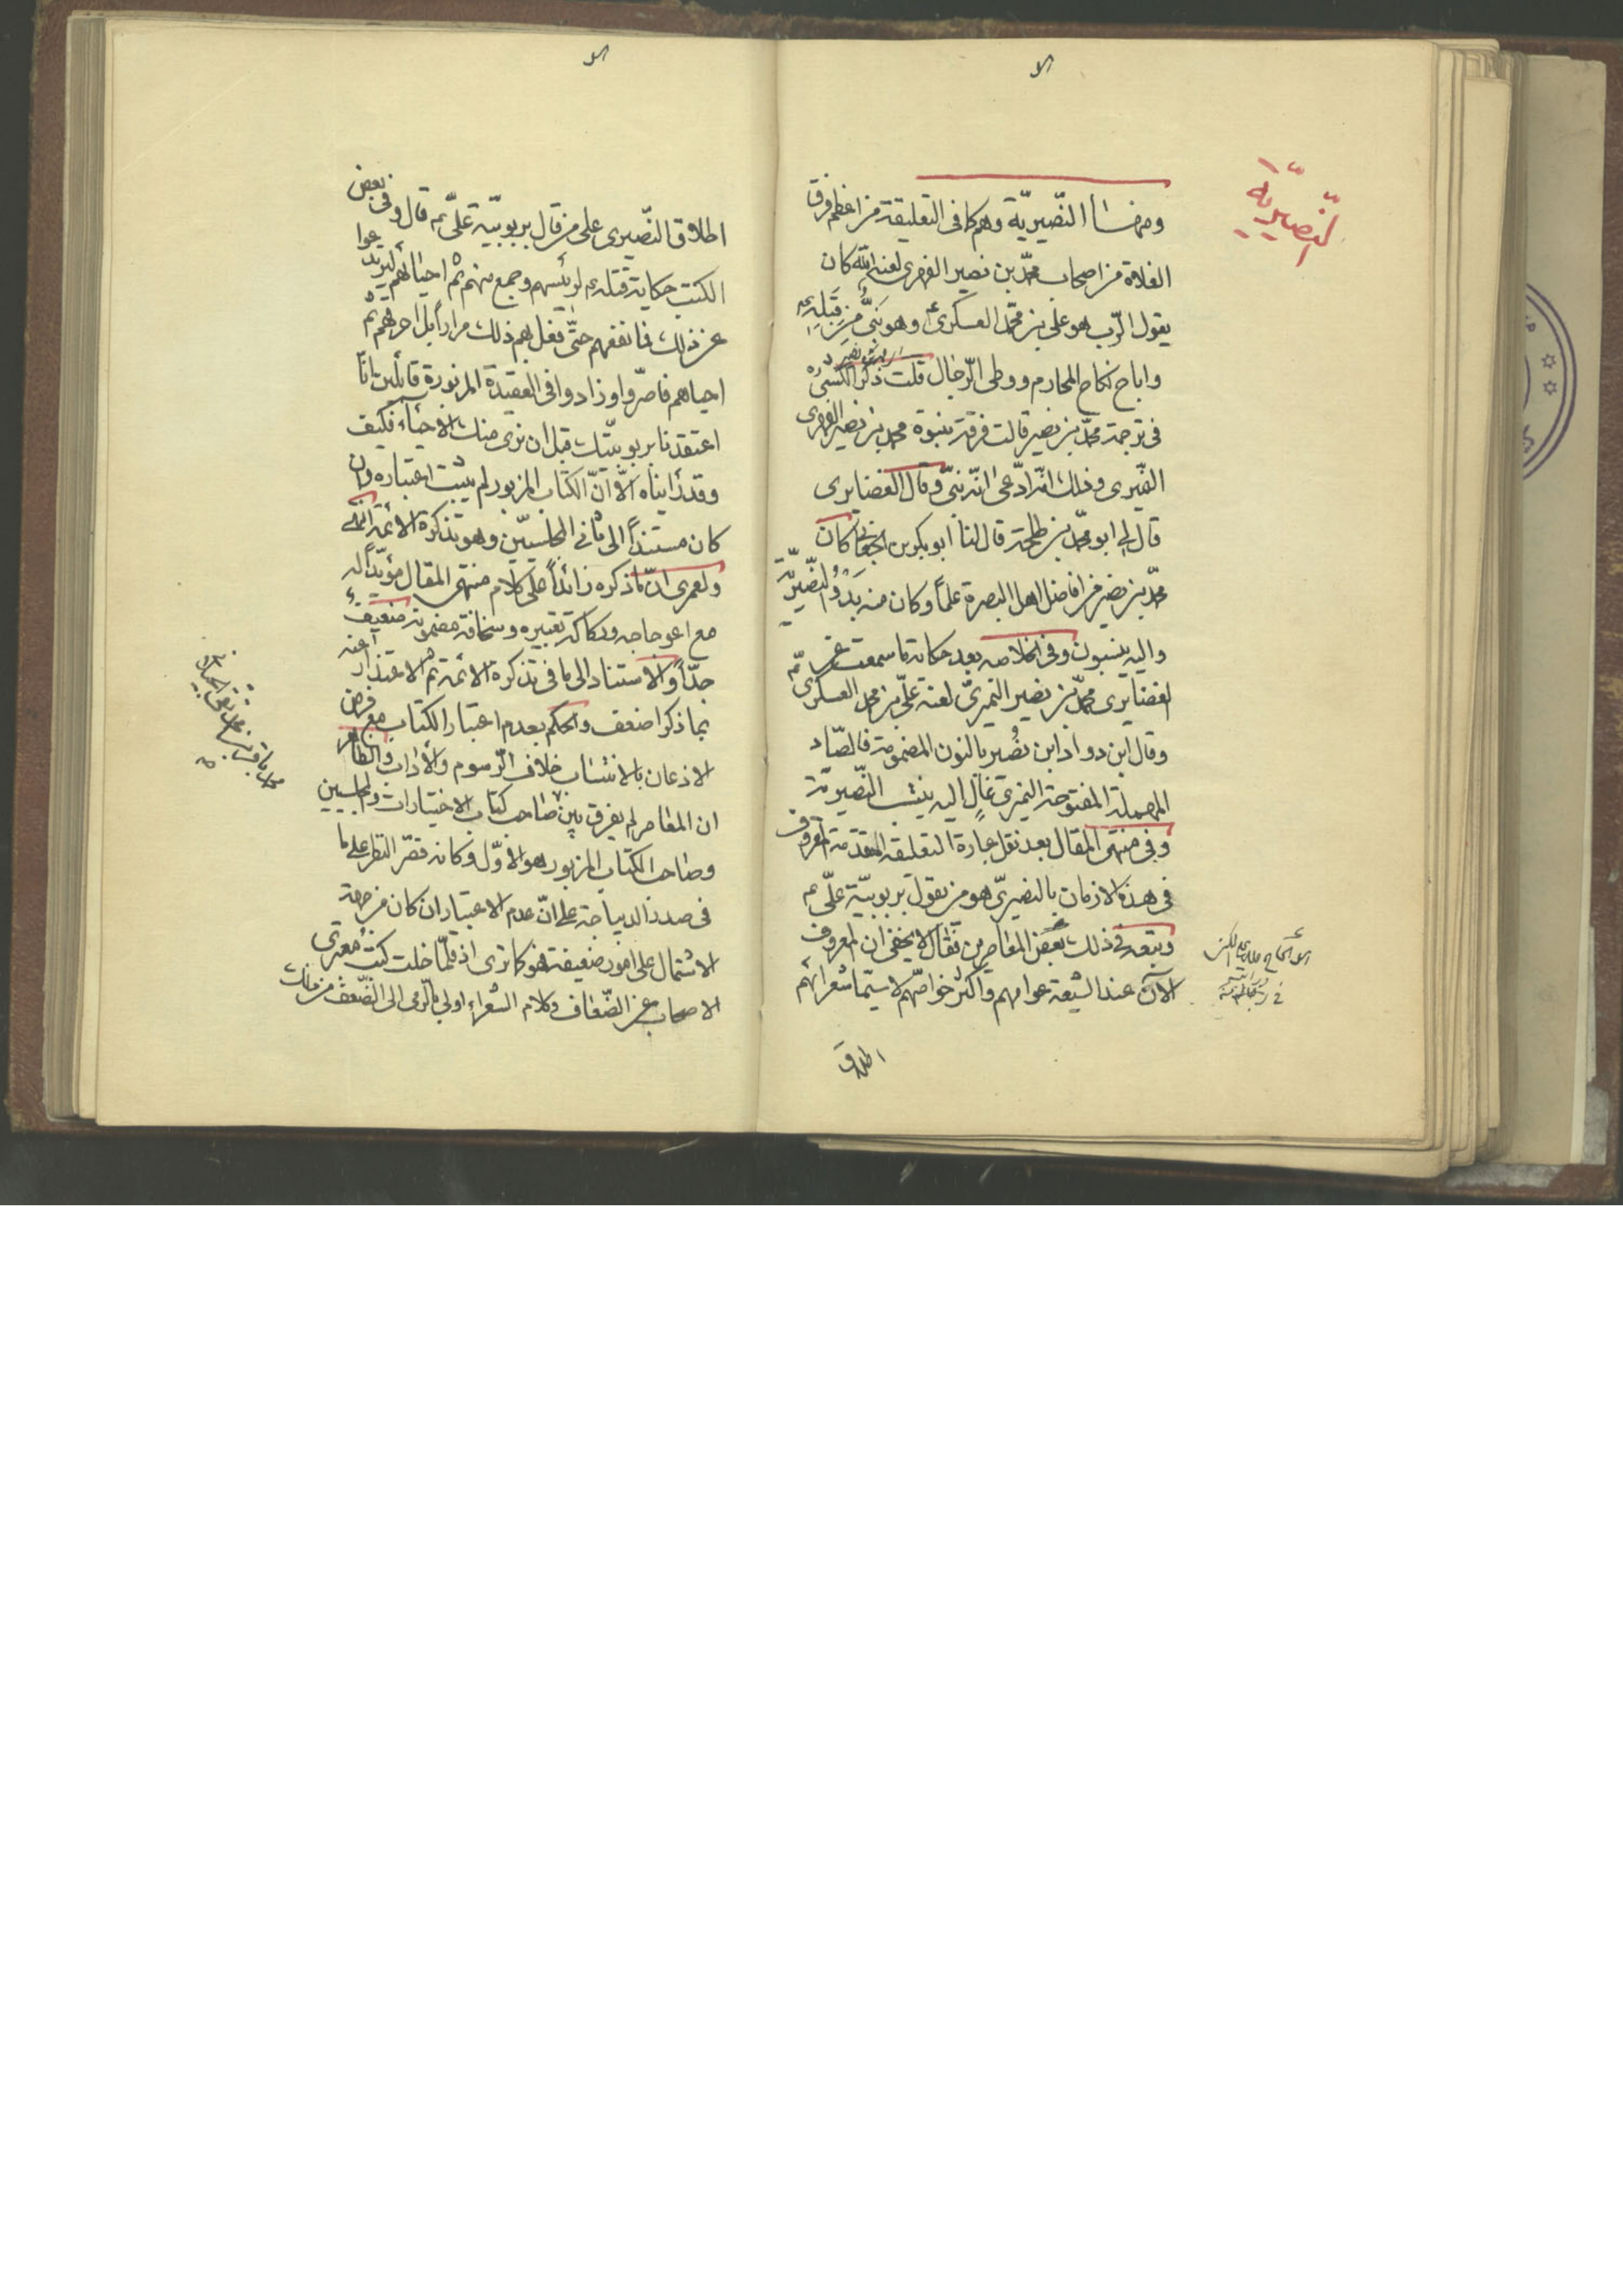 النصيرية
ومنها النّصيريّة وهم كما فى التعليقة من اعظم فرق
الغلاة من اصحاب محمّد بن نصير الفهرى لعنه الله كان
يقول الرّب هو علىّ بن محمّد العسكرى ع وهو نبىٌّ من قِبَلِه
واباح نكاح المحارم ووطى الرّجال قلت ذكر الكشى ره
فى ترجمة محمّد بن نصير قالت فرقة بنبوة محمد بن نصير الفهرى
النميرى وذلك انّه ادّعى انّه نبّى وقال الغضايرى
قال لى ابو محمّد بن طلحة قال لنا ابو بكر بن الجعابى كان
محمّد بن نصير من افاضل اهل البصرة علماً وكان منه بَدْوُ النّصيريّة
واليه ينسبون وفى الخلاصه بعد حكاية ما سمعت عن
الغضايرى محمّد بن نصير النميرىّ لعنه علىّ بن محمد العسكرى
وقال ابن دواد ابن نُصير بالنون المضمومة فالصّاد
المهملة المفتوحة النميرى غالٍ اليه ينتسب النّصيرية
وفى منتهى المقال بعد نقل عبارة التعليقه المتقدمة المعروف
فى هذه الازمان بالنصيرىّ هو من يقول بربوبيّة علىّ ع
وتبعه فى ذلك بعض المعاصرين فقال لا يخفى ان المعروف
الآن عند الشيعة عوامهم واكثر خواصّهم لا سيّما شعرائهم
اطلاق
اطلاق النّصيرى على من قال بربوبيّة علىّ ع قال وفى بعض
الكتب حكاية قتله ع لرئيسهم وجمع منهم ثم احيائهم ليرتدعوا
عن ذلك فما نفعهم حتّى فعل بهم ذلك مراراً بل احرقهم ثم
احياهم فاصرّوا وزادوا فى العقيدة المزبورة قائلين بانّا
اعتقدنا بربوبيّتك قبل ان نرى منك الاحياء فكيف
وقد رأيناه الّا انّ الكتاب المزبور لم يثبت اعتباره وان
كان مستنداً الى ثانى المجلسيّين وهو تذكرة الائمة انتهى
ولعمرى انّ ما ذكره زائداً على كلام منتهى المقال مؤيّداً له
مع اعوجاجه وركاكة تعبيره وسخافة مضمونه ضعيف
جدّاً والاستناد الى ما فى تذكرة الائمة ثم الاعتذار عنه
بما ذكر اضعف والحكم بعدم اعتبار الكتاب مع فرض
الاذعان بالانتساب خلاف الرّسوم والآداب والظاهر
ان المعاصر لم يفرق بين صاحب كتاب الاختيارات والمجلسيين
وصاحب الكتاب المزبور هو الاوّل وكانه قصّر النظر على ما
فى صدر الديباجة على انّ عدم الاعتبار ان كان من جهة
الاشتمال على امور ضعيفة فهو كما ترى اذ قلّما خلت كتب معتبرى
الاصحاب عن الضّعاف وكلام الشعراء اولى بالرّمى الى الضّعف من تلك